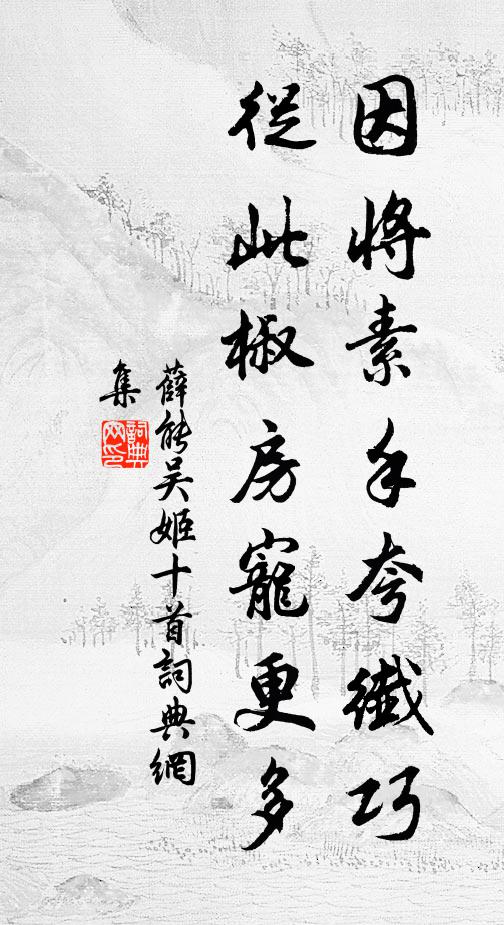 因將素手夸纖巧
從此椒房寵更多
薛能吳姬十首詞典網
集
詞典
网印